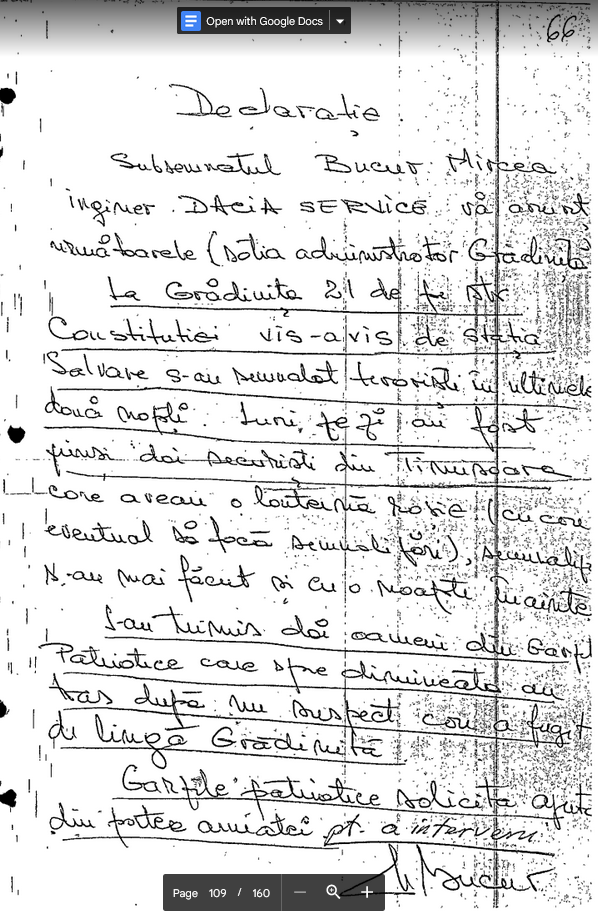 Open with Google Docs
66
Declarație
Subsemnatul Bucur Mircea
inginer DACIA SERVICE vă anunț
următoarele (soția administrator Grădiniță
La Grădinița 21 de pe str
Constituției vis-a vis de stația
Salvare s-au semnalat teroriști în ultimele
două nopți. Luni, pe zi au fost
prinși doi securiști din Timișoara
care aveau o lanternă roșie (cu care
eventual să facă semnalizări), semnaliz
s-au mai făcut și cu o noapte înainte
S-au trimis doi oameni din Gărzi
Patriotice care spre dimineață au
tras după un suspect care a fugit
de lîngă Grădiniță
Gărzile patriotice solicită ajut
din partea armatei pt. a interveni.
MBucur
Page 109 / 160